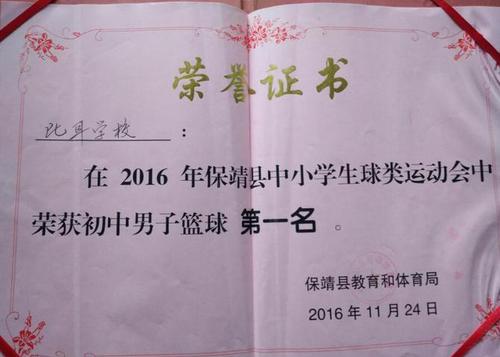 荣誉证书
比耳学校：
在 2016 年保靖县中小学生球类运动会中
荣获初中男子篮球 第一名 。
保靖县教育和体育局
2016 年 11 月 24 日